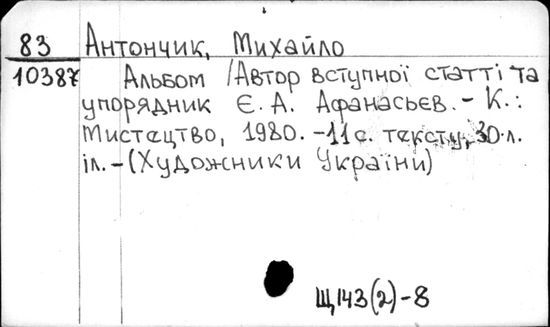 83 Антончик, Михайло
10387 Альбом /Автор вступної статті та
упорядник Є. А. Афанасьєв. - К.:
Мистецтво, 1980. -11 с. тексту, 30 л.
іл. - (Художники України)
Щ143(2)-8